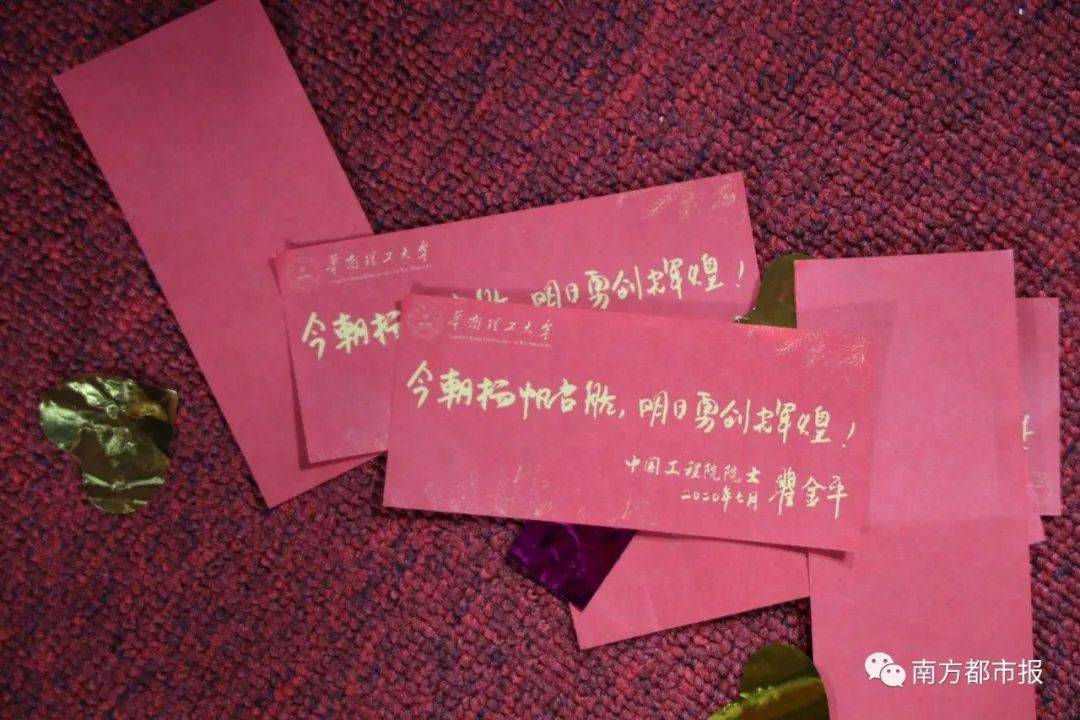 华南理工大学
今朝杨
明日勇创辉煌!
华南理工大学
South China University of Technology
今朝杨帆启航,明日勇创辉煌!
中国工程院院士
2020年七月 瞿金平
南方都市报